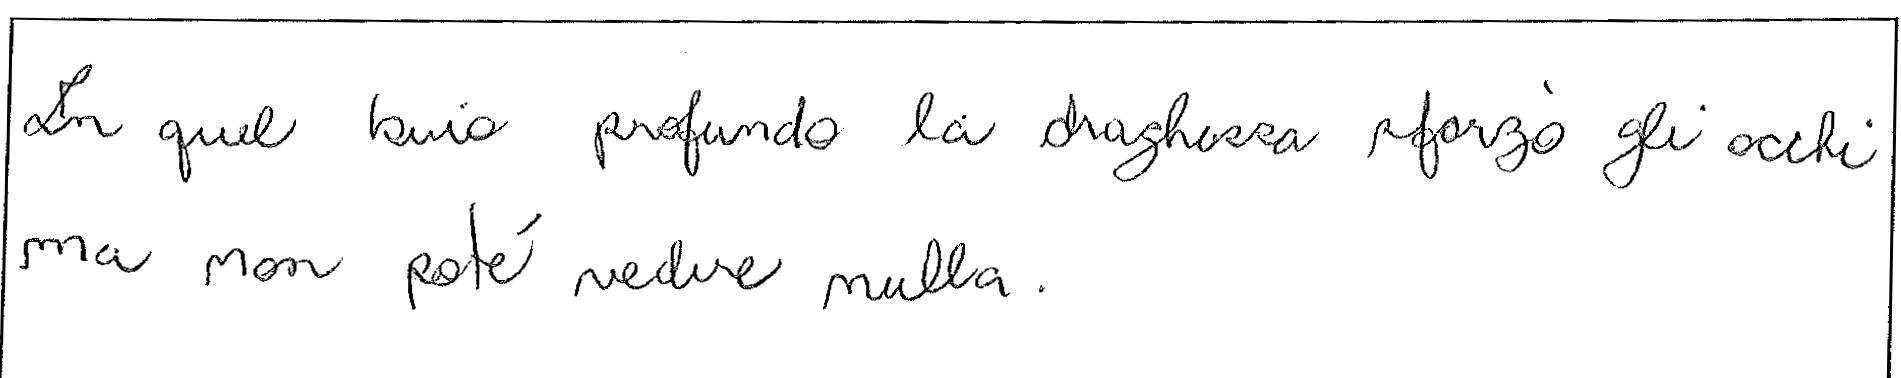 In quel buio profundo la draghessa sforzò gli occhi
ma non poté vedere nulla.